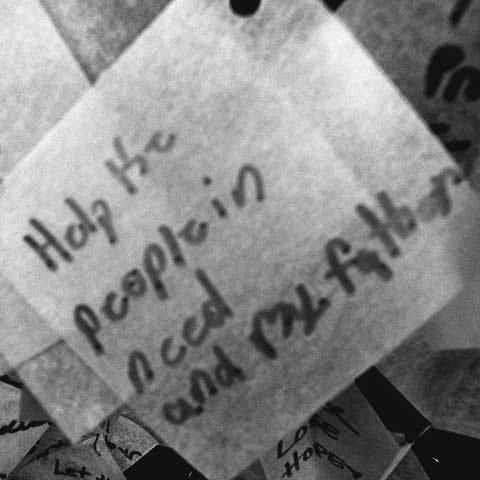 Help the
people in
need
and my father
Let
Love
Hope